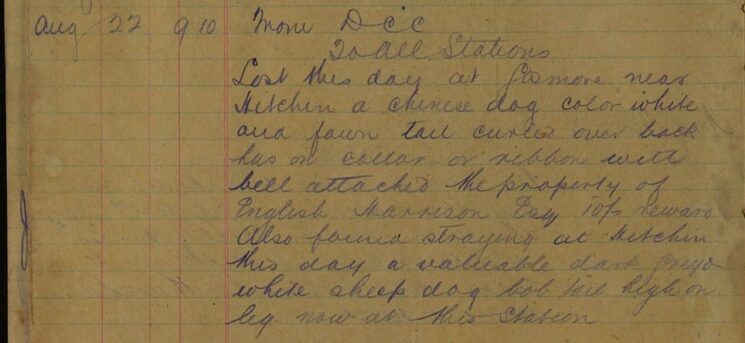 Aug 22 9 10 From D C C
To all Stations
Lost this day at Gosmore near
Hitchin a chinese dog color white
and fawn tail curled over back
has on collar or ribbon with
bell attached the property of
English Harrison Esq 10/- reward
Also found straying at Hitchin
this day a valuable dark grey &
white sheep dog bob tail high on
leg now at this Station